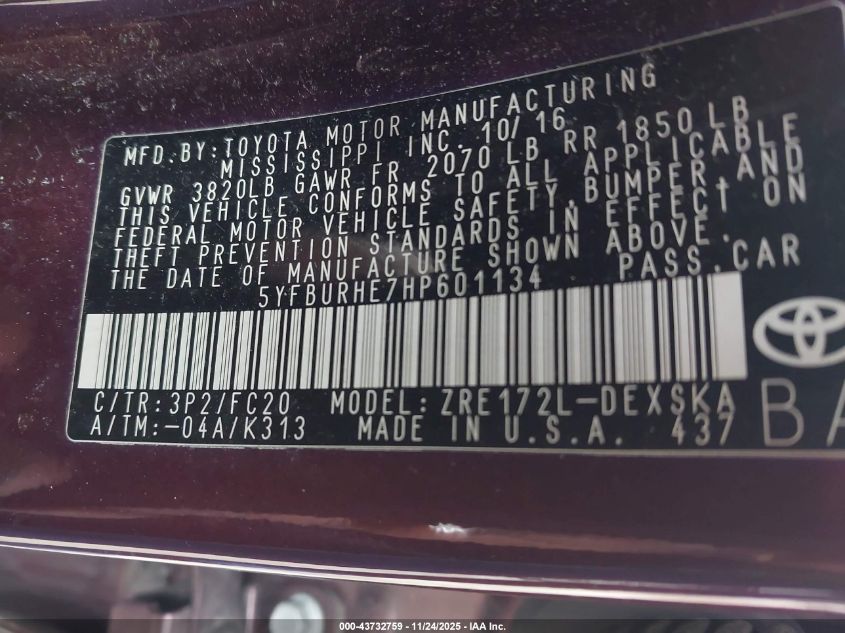 MFD. BY: TOYOTA MOTOR MANUFACTURING
MISSISSIPPI INC. 10/16
GVWR 3820LB GAWR FR 2070 LB RR 1850 LB
THIS VEHICLE CONFORMS TO ALL APPLICABLE
FEDERAL MOTOR VEHICLE SAFETY, BUMPER, AND
THEFT PREVENTION STANDARDS IN EFFECT ON
THE DATE OF MANUFACTURE SHOWN ABOVE.
5YFBURHE7HP601134 PASS. CAR
C/TR: 3P2/FC20 MODEL: ZRE172L-DEXSKA
A/TM: -04A/K313 MADE IN U.S.A. 437
BA
000-43732759 - 11/24/2025 - IAA Inc.